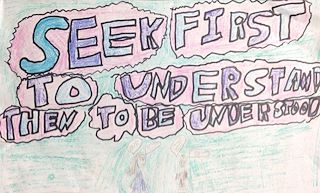 SEEK FIRST
TO UNDERSTAND
THEN TO BE UNDERSTOOD